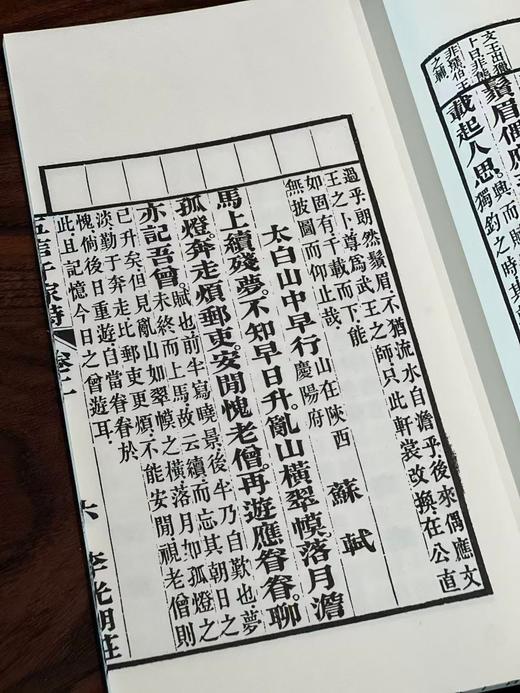 文王出獵
卜曰非熊
非羆伯王
之輔
鬚眉偶
載起人思。
獨釣之時其
過乎朗然鬚眉不猶流水自澹乎後來偶應文
王之卜尊為武王之師只此軒裳改換在公直
如固有千載而下能
無披圖而仰止哉
太白山中早行 山在陝西慶陽府 蘇軾
馬上續殘夢。不知早日升。亂山橫翠幛。落月澹
孤燈。奔走煩郵吏。安閒愧老僧。再遊應眷眷。聊
亦記吾曾。
賦也前半寫曉景後半乃自歎也夢
未終而上馬故云續而忘其朝日之
已升矣但見亂山如翠幛之橫落月如孤燈之
淡勤于奔走比郵吏更煩不能安閒視老僧則
愧倘後日重遊自當眷眷於
此且記憶今日之曾遊耳
五言千家詩 卷二 六 李光明莊